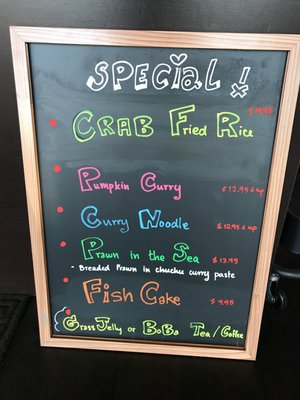 SPECiAL!
$ 14.95
CRAB Fried Rice
Pumpkin Curry $ 12.95 & up
Curry Noodle $ 12.95 & up
Prawn in the Sea $ 13.95
- Breaded Prawn in chuchee curry paste
Fish Cake $ 9.95
Grass Jelly or BoBa Tea/Coffee